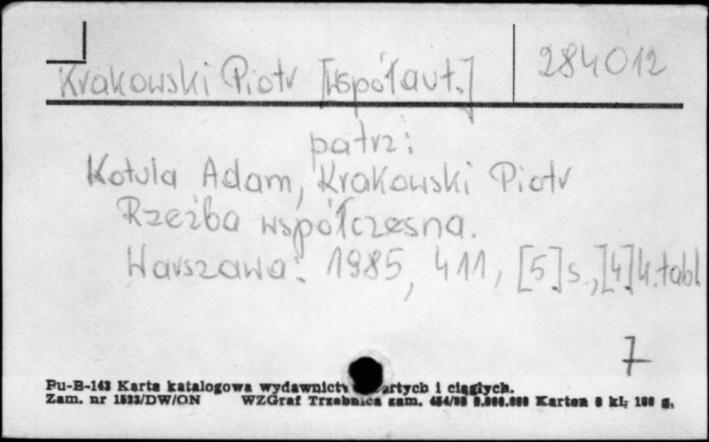 Krakowski Piotr [współaut.] 284012
patrz:
Kotula Adam, Krakowski Piotr
Rzeźba współczesna.
Warszawa: 1985, 411, [5] s., [4] k. tabl
7
Pu-B-143 Karta katalogowa wydawnictw i ciągłych.
Zam. nr 1523/DW/ON WZGraf Trzebnica zam. Karton kl,